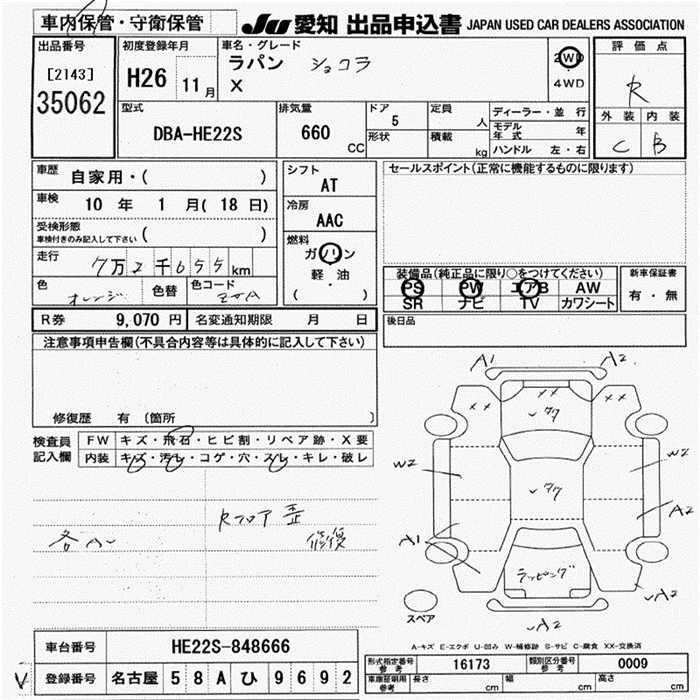 車内保管・守衛保管
JU 愛知 出品申込書 JAPAN USED CAR DEALERS ASSOCIATION
出品番号
[2143]
35062
初度登録年月
H26 11月
車名・グレード
ラパン ショコラ
X
2WD
4WD
評価点
R
外装 内装
C B
型式
DBA-HE22S
排気量
660 CC
ドア 5
形状
定員 人
積載 kg
ディーラー・並行
モデル年式 年
ハンドル 左・右
車歴 自家用・( )
車検 10年 1月(18日)
受検形態
車検付きのみ記入して下さい ( )
走行 7万2千655km
色 オレンジ 色替 色コード
シフト
AT
冷房
AAC
燃料
ガソリン
軽・油
( )
セールスポイント(正常に機能するものに限ります)
装備品(純正品に限り○をつけてください)
PS PW エアB AW
SR ナビ TV カワシート
新車保証書
有・無
R券 9,070円 名変通知期限 月 日
後日品
注意事項申告欄(不具合内容等は具体的に記入して下さい)
修復歴 有 (箇所 )
検査員記入欄
FW キズ・飛石・ヒビ割・リペア跡・X要
内装 キズ・汚レ・コゲ・穴・スレ・キレ・破レ
Rフロア歪
修復
A1 A2
XX XX XX
W2 W2
A1 A2
ラッピング
A2
A2
スペア
A-キズ E-エクボ U-凹み W-補修跡 S-サビ C-腐食 XX-交換済
車台番号 HE22S-848666
登録番号 名古屋 58A ひ 9692
形式指定番号 参考 16173 類別区分番号 参考 0009
車庫証明用 参考 長さ cm 幅 cm 高さ cm